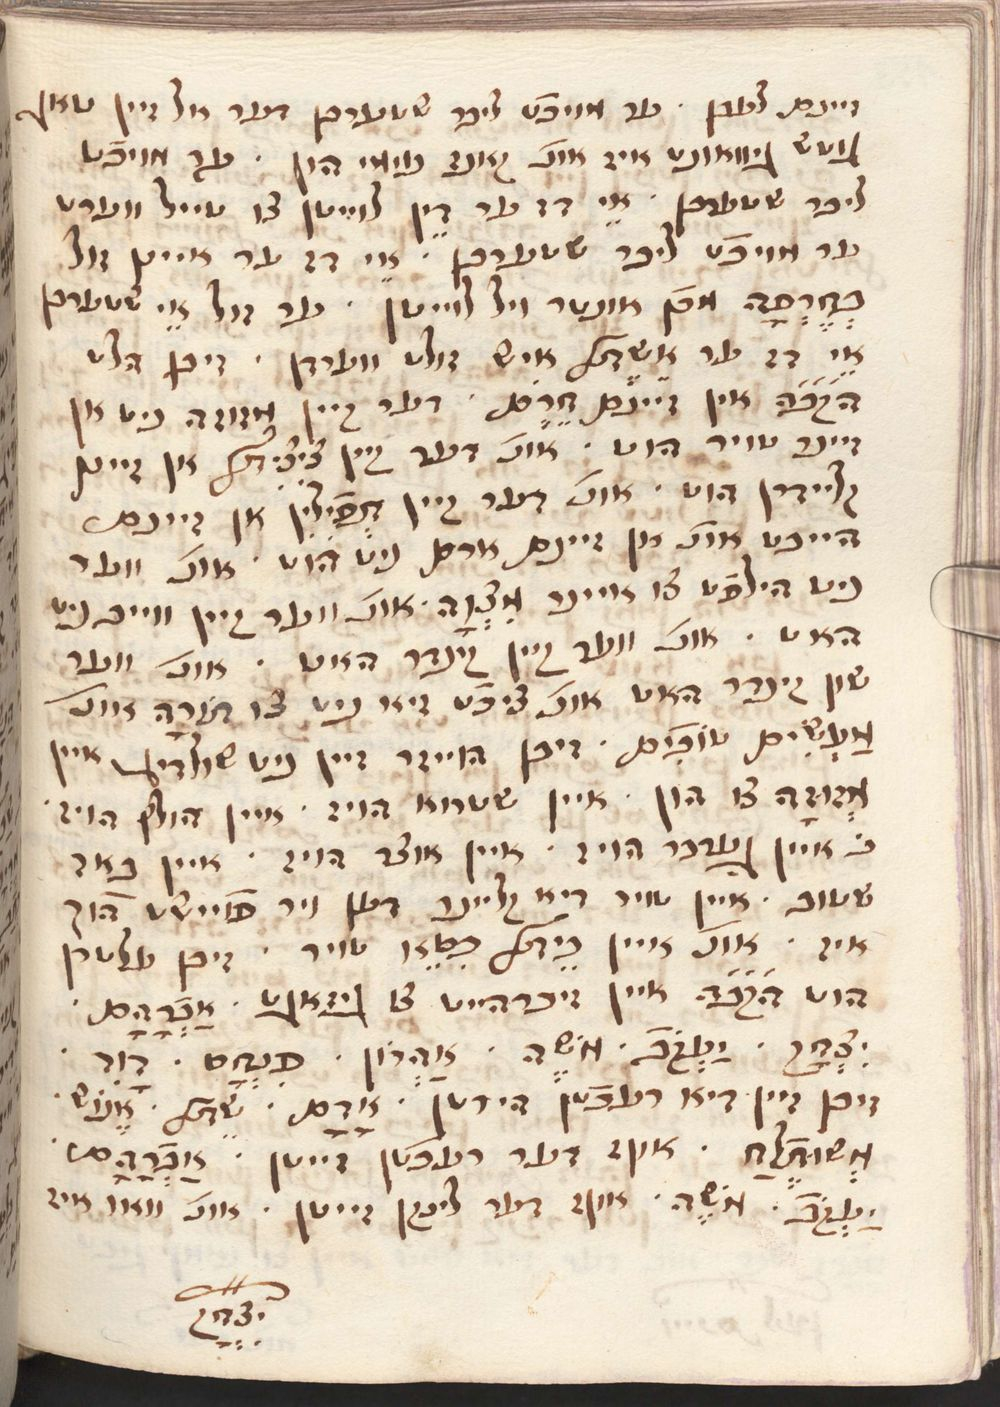 זיינם לעבן · ער מויכט ליבר שטערבן דער זל זיין טאג
גוטש גיוואונט איז אונ זאונד הון · ער מויכט
ליבר שטערבן · אֵי דז ער דִין לוייטן צו טייל ווערט
ער מויכט ליבר שטערבן · אֵי דז ער איינן זול
בְחֶרְפָה אונטר ויל לוייטן · ער זול אֵי שטערבן
אֵי דז ער זולט ווערדן · זיבן הלט
הקבה אין זיינם חֵרֶם · דער קיין מזוזה ניט אן
זיינר טויר הוט · אונ דער קיין צִיצִית אן זיינן
קליידרן הוט · אונ דער קיין תְפִילִין אן זיינם
הייבט אונ אן זיינם ארם ניט הוט · אונ ווער
ניט הילפט צו איינר מִצְוָה · אונ ווער קיין ווייב ניט
האט · אונ ווער קיין קינדר האט · אונ ווער
שון קינדר האט אונ ציכט זיא ניט צו תוֹרָה אונ
מַעֲשִׂים טוֹבִים · זיבן הוייזר זיין ניט שולדיג איין
מְזוּזָה צו הון · איין שטרוא הויז · איין הולץ הויז ·
איין הויז · איין אוצר הויז · איין באד
שטוב · איין טויר דיא קליינר דען הוך
איז · אונ איין טויר · זיבן עלטרן
הוט הקבה איין זיכרהייט צו גיזאגט · אַבְרָהָם ·
יִצְחָק · יַעֲקֹב · מֹשֶׁה · אַהֲרֹון · פִנְחָס · דָוִד ·
זיבן זיין דיא רעכטן הירטן · אָדָם · שֵׁת · אֱנוֹשׁ ·
מְתוּשֶׁלַח · אויף דער רעכטן זייטן · אַבְרָהָם ·
יַעֲקֹב · מֹשֶׁה · אויף דער לינקן זייטן · אונ וואו איז
יִצְחָק